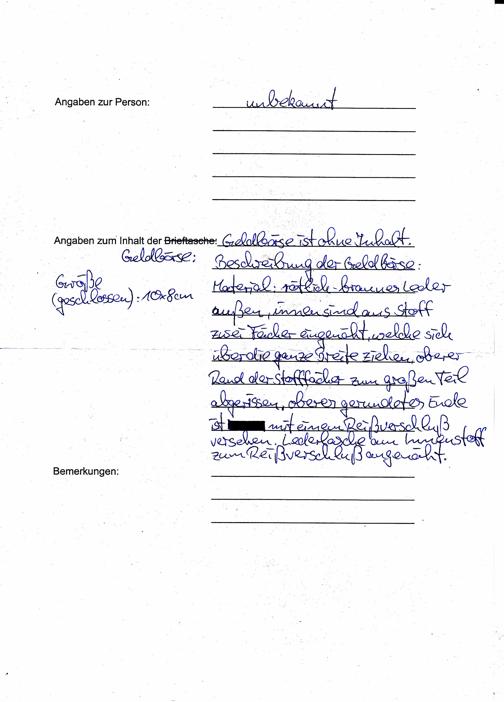 Angaben zur Person: unbekannt
Angaben zum Inhalt der Brieftasche: Geldbörse ist ohne Inhalt.
Geldbörse: Beschreibung der Geldbörse:
Größe
(geschlossen): 10x8cm
Material: rötlich-braunes Leder
außen, innen sind aus Stoff
zwei Fächer eingenäht, welche sich
über die ganze Breite ziehen, oberer
Rand der Stofffächer zum großen Teil
abgerissen, oberes gerundetes Ende
ist mit einem Reißverschluß
versehen. Lederlasche am Innenstoff
zum Reißverschluß angenäht.
Bemerkungen: